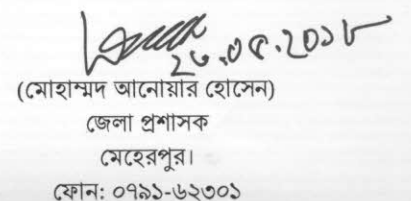 ২৩.০৫.২০১৮
(মোহাম্মদ আনোয়ার হোসেন)
জেলা প্রশাসক
মেহেরপুর।
ফোন: ০৭৯১-৬২৩০১